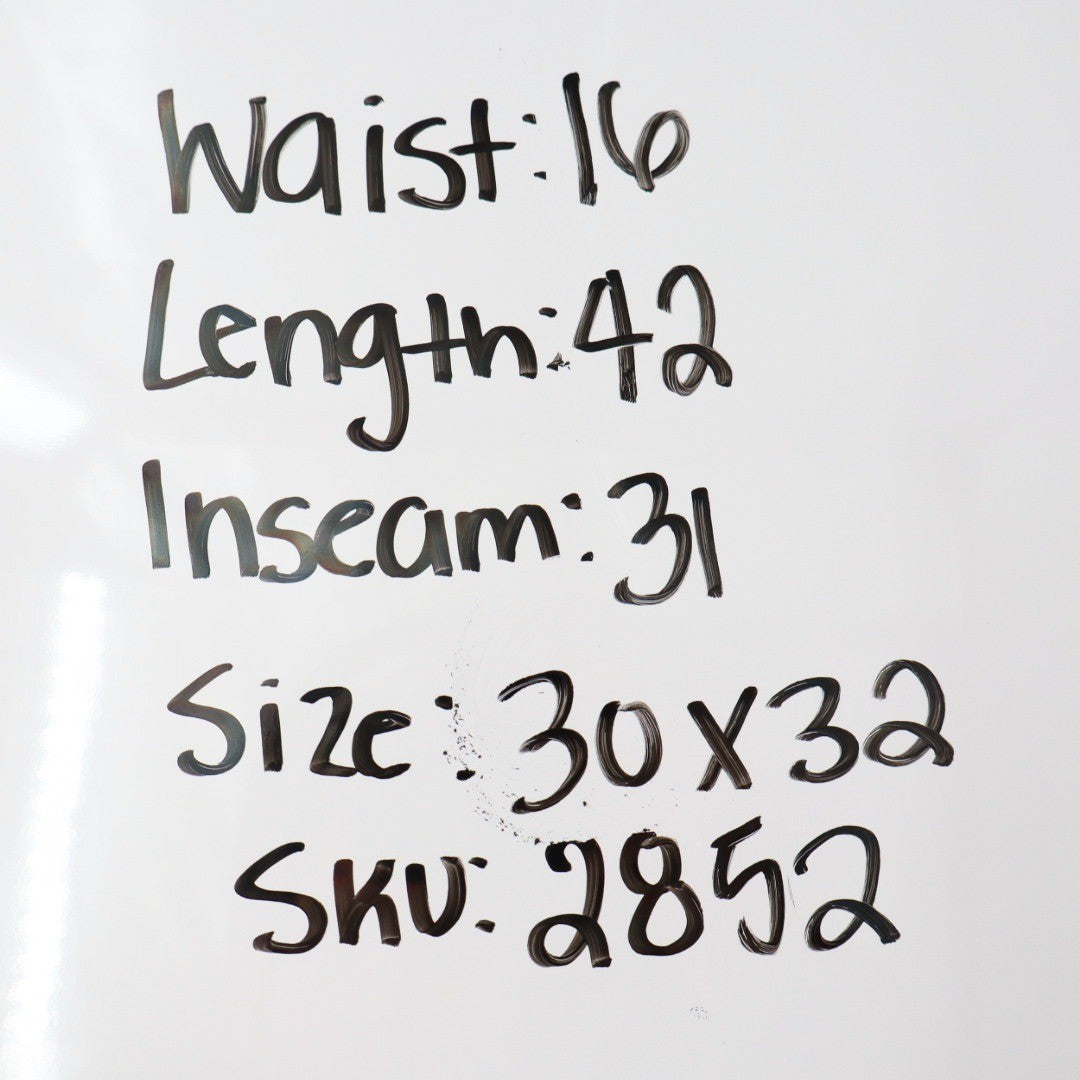 Waist: 16
Length: 42
Inseam: 31
Size: 30 x 32
SKU: 2852